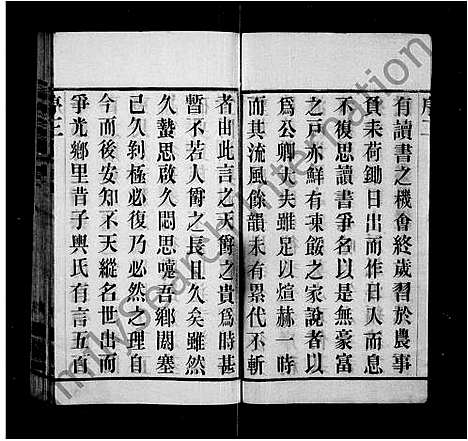 序二
有讀書之機會終歲習於農事
負耒荷鋤日出而作日入而息
不復思讀書爭名以是無豪富
之戸亦鮮有凍餒之家說者以
爲公卿大夫雖足以煊赫一時
而其流風餘韻未有累代不斬
者由此言之天爵之貴爲時甚
暫不若人爵之長且久矣雖然
久蟄思啟久悶思嚏吾鄉閉塞
已久剝極必復乃必然之理自
今而後安知不天縱名世出而
爭光鄉里昔子輿氏有言五百
序三
milySearch International